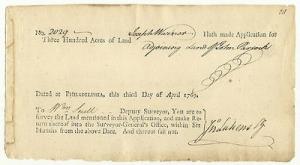 No. 2029 Joseph Warner Hath made Application for
Three Hundred Acres of Land Adjoining Land of John
Dated at PHILADELPHIA, this third Day of April 1769.
To Wm Scull Deputy Surveyor, You are to
survey the Land mentioned in this Application, and make Re-
turn thereof into the Surveyor-General's Office, within Six
Months from the above Date. And thereof fail not.
Jno Lukens SG